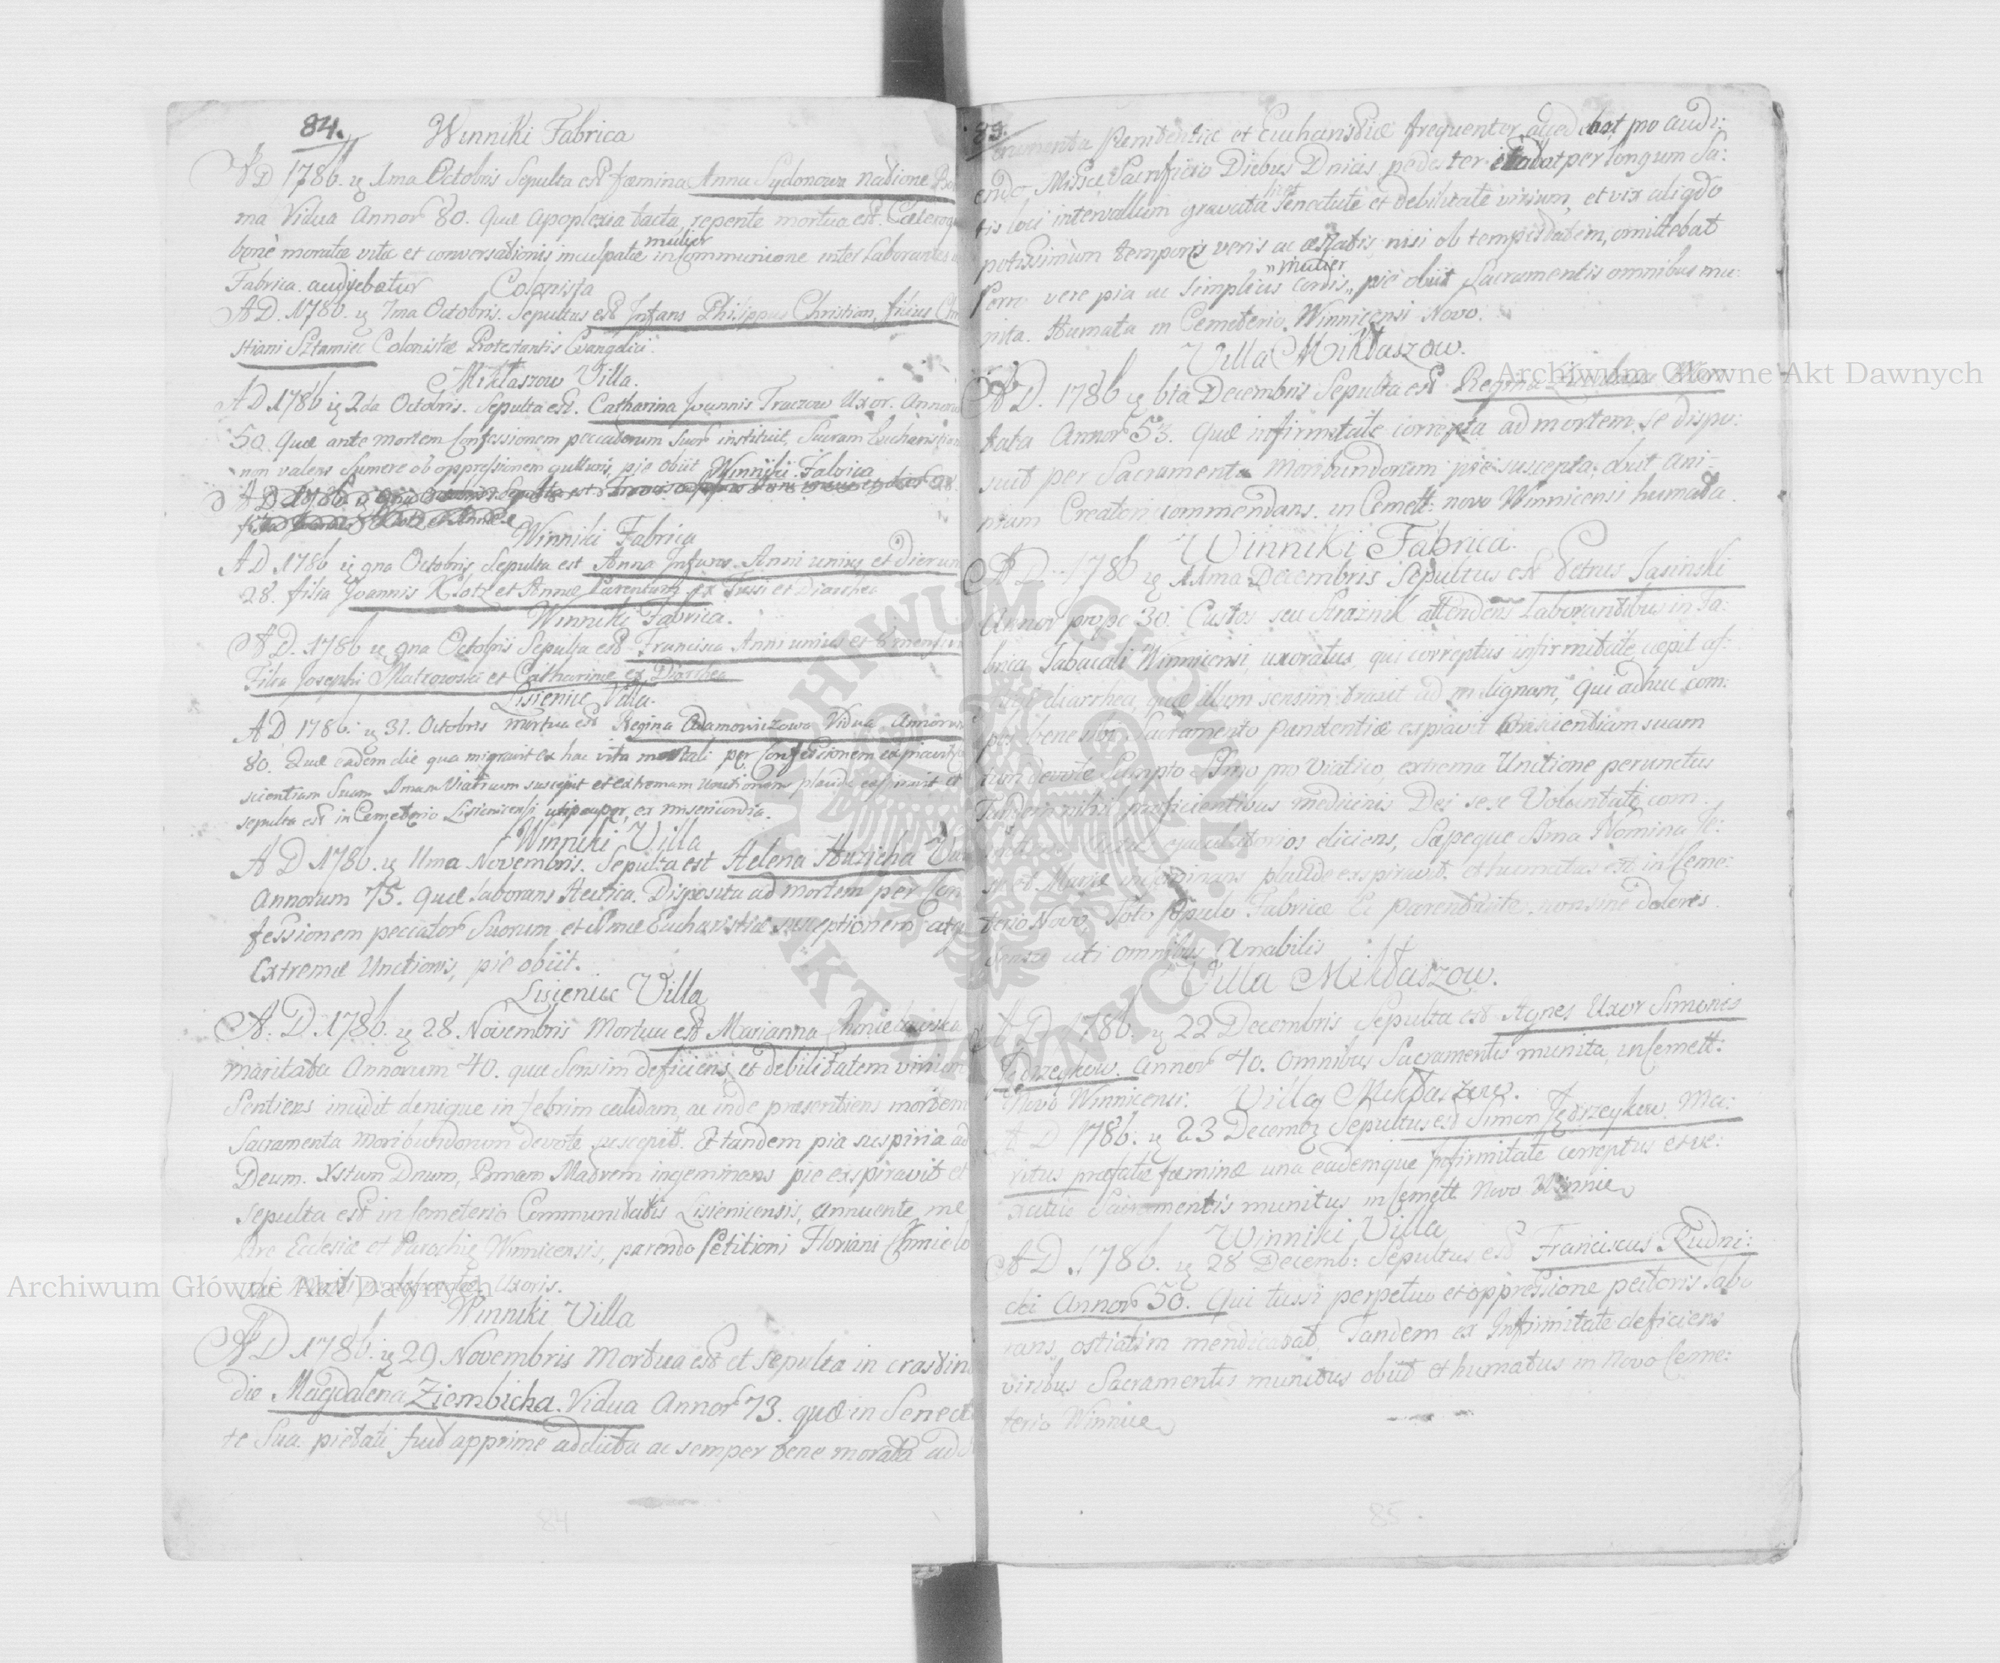 84.
Winniki Fabrica
A D 1786. 1ma Octobris Sepulta est fœmina Anna Sydonowa natione
ma Vidua Annor 80. Quæ apoplexia tacta, repente mortua est.
bonè moratæ vitæ et conversationis inculpatæ mulier in Communione inter Laborantes
Fabrica. audiebatur
Colonista
A D. 1786. 7ma Octobris. Sepultus est Infans Philippus Christian, filius
stiani Sztamiec Colonistæ Protestantis Evangelici.
Miklaszow Villa.
A D 1786 2da Octobris. Sepulta est. Catharina Joannis Traczow Uxor. Annor
50. Quæ ante mortem Confessionem peccatorum Suor instituit, Sacram Eucharistiam
non valens Sumere ob oppressionem gutturis, pie obiit
Winniki Fabrica
Winniki Fabrica
A D 1786 9na Octobris Sepulta est Anna Infans. Anni unius et Dierum
28. filia Joannis Klotz et Annæ Parentum ex Tussi et Diarrhea
Winniki Fabrica.
A D. 1786 9na Octobris Sepulta est Francisca Anni unius et 8 mensium
Filia Josephi Matrowski et Catharinæ ex Diarrhea
Lisienic Villa.
A D 1786. 31. Octobris mortua est Regina Adamowiczowa Vidua Annorum
80. Quæ eadem die qua migravit ex hac vita mortali per Confessionem expiavit
scientiam Suam Smam Viaticum suscepit et extremam Unctionem placide expiravit et
sepulta est in Cemeterio Lisienicensi uti pauper, ex misericordia.
Winniki Villa
A D 1786. 11ma Novembris. Sepulta est Helena Huzicha
Annorum 75. Quæ laborans Hectica. Disposita ad mortem per Con
fessionem peccator Suorum, et SSmæ Eucharistiæ susceptionem atque
Extremæ Unctionis, pie obiit.
Lisienic Villa
A. D. 1786. 28. Novembris Mortua est Marianna
maritata Annorum 40. quæ Sensim deficiens, et debilitatem virium
Sentiens incidit denique in febrim calidam, ac inde præsentiens mortem
Sacramenta Moribundorum devote suscepit. Et tandem pia suspiria ad
Deum. Xstum Dnum, Bmam Matrem ingeminans pie expiravit et
Sepulta est in Cemeterio Communitatis Lisienicensis, annuente me
Ecclesiæ et Parochiæ Winnicensis, parendo Petitioni Floriani Chmielo
Uxoris.
Winniki Villa
A D 1786. 29 Novembris Mortua est et Sepulta in crastina
die Magdalena Ziembicha. Vidua Annor 73. quæ in Senectu
te Sua pietati fuit apprime addicta ac semper bene morata ad
84
85.
Sacramenta Penitentiæ et Eucharistiæ frequenter accedebat, pro audi:
endo Missæ Sacrificio Diebus Dnicis pedester per longum Sa:
tis loci intervallum gravata licet Senectute et debilitate virium, et vix aliqdo
potissimum temporis veris ac æstatis nisi ob tempestatem, omittebat
vere pia ac Simplicis cordis mulier, pie obiit Sacramentis omnibus mu:
nita. Humata in Cemeterio Winnicensi Novo.
Villa Mikłaszow.
A D. 1786 6ta Decembris Sepulta est Regina
tata Annor 53. Quæ infirmitate correpta ad mortem se dispo:
suit per Sacramenta Moribundorum pie suscepta, obiit ani:
mam Creatori commendans. in Cemett: novo Winnicensi humata.
Winniki Fabrica.
A D. 1786 11ma Decembris Sepultus est Petrus Jasinski
Annor prope 30. Custos seu Strażnik attendens Laborantibus in Fa:
brica Tabacali Winnicensi, uxoratus, qui correptus infirmitate cœpit af:
diarrhea, quæ illum sensim traxit ad malignam, Qui adhuc com:
pos bene sibi Sacramento Pœnitentiæ expiavit Conscientiam suam
devote Sumpto SSmo pro Viatico, extrema Unctione perunctus
Tandem nihil proficientibus medicinis Dei sese Voluntati com.
ejaculatorios eliciens, Sæpeque SSma Nomina Je:
su et Mariæ ingeminans placide expiravit, et humatus est in Ceme:
terio Novo, toto Populo Fabricæ Ei Parentante non sine dolore.
uti omnibus Amabilis
Villa Mikłaszow.
A D. 1786. 22 Decembris Sepulta est Agnes Uxor Simonis
Jędrzeykow. Annor 40. Omnibus Sacramentis munita in Cemett.
Novo Winnicensi.
Villa Mikłaszow.
A D 1786. 23 Decemb Sepultus est Simon Jędrzeykow, Ma:
ritus præfatæ fœminæ una eademque infirmitate correptus
Sacramentis munitus in Cemett Novo Winnic
Winniki Villa
A D. 1786. 28 Decemb: Sepultus est Franciscus Rudni:
cki Annor 50. Qui tussi perpetuo et oppressione pectoris labo
rans, ostiatim mendicabat, Tandem ex Infirmitate deficiens
viribus Sacramentis munitus obiit et humatus in novo Ceme:
terio Winnic
85.
Archiwum Główne Akt Dawnych
Archiwum Główne Akt Dawnych
ARCHIWUM GŁÓWNE AKT DAWNYCH